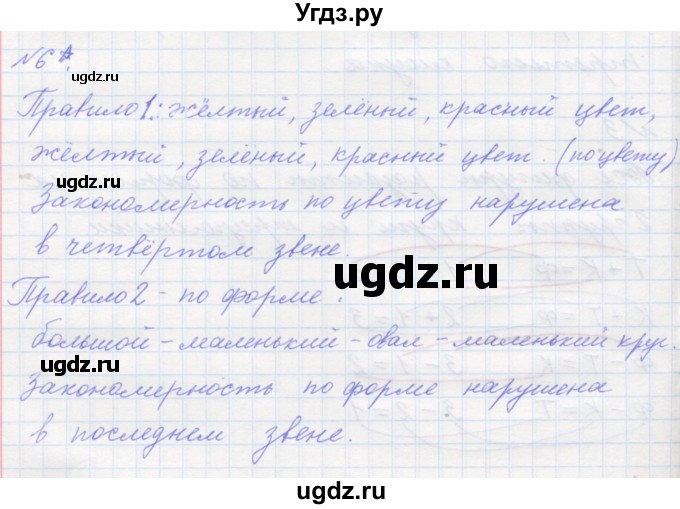 Угдз.ру
№6
ugdz.ru
Правило 1: жёлтый, зелёный, красный цвет,
жёлтый, зелёный, красный цвет. (по цвету)
ugdz.ru
Закономерность по цвету нарушена
в четвёртом звене.
ugdz.ru
Правило 2 - по форме:
большой - маленький - овал - маленький круг.
ugdz.ru
Закономерность по форме нарушена
в последнем звене.
ugdz.ru
ugdz.ru